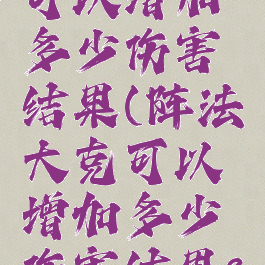 可以增加
多少伤害
结果(阵法
大克可以
增加多少
伤害结果?